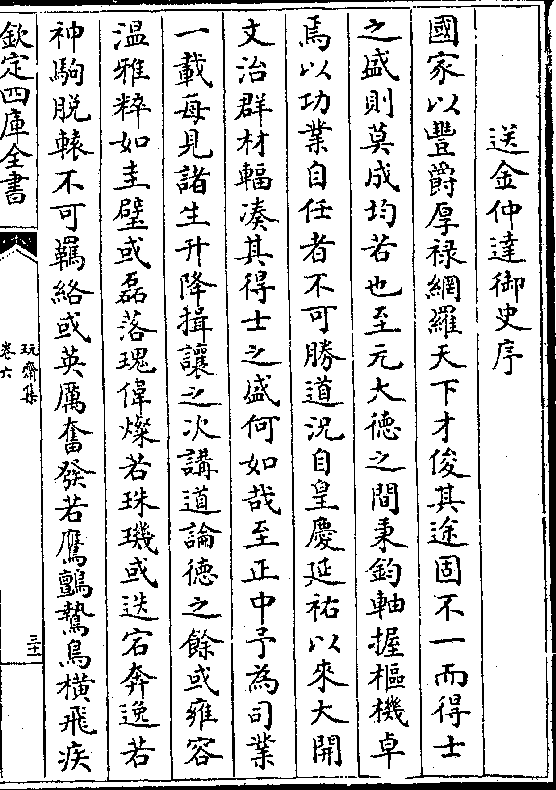 送金仲達御史序
國家以豐爵厚禄網羅天下才俊其途固不一而得士
之盛則莫成均若也至元大德之間秉鈞軸握樞機卓
焉以功業自任者不可勝道況自皇慶延祐以來大開
文治群材輻凑其得士之盛何如哉至正中予為司業
一載每見諸生升降揖讓之次講道論德之餘或雍容
温雅粹如圭璧或磊落瑰偉燦若珠璣或迭宕奔逸若
神駒脱轅不可羈絡或英厲奮發若鷹鸇鷙鳥橫飛疾
欽定四庫全書
玩齋集
卷六
三十